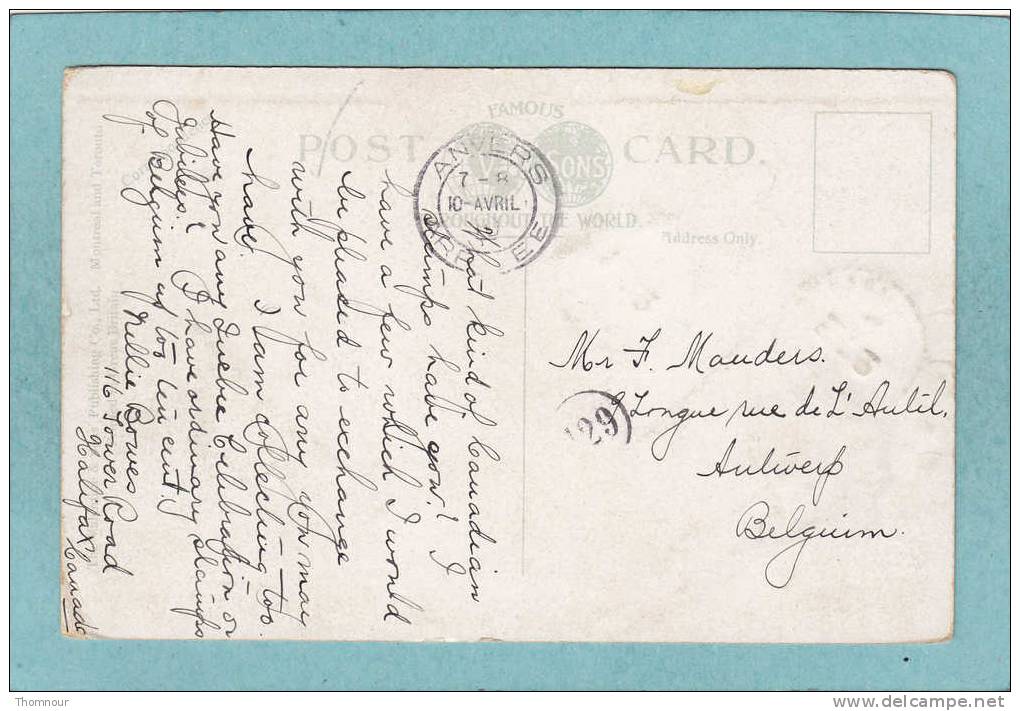 FAMOUS
POST CARD.
SONS
THROUGHOUT THE WORLD.
Address Only.
ANVERS
7-8
10-AVRIL
What kind of Canadian
stamps have you? I
have a few which I would
be pleased to exchange
with you for any you may
have. I am collecting too.
Have you any Quebec Celebration or
Jubilees? I have ordinary stamps
of Belgium up to ten cent.
Nellie Bowes
116 Tower Road
Halifax
Canada
Mr F. Manders.
Longue rue de L'Autil,
Antwerp
Belguim.
129
Publishing Co., Ltd. Montreal and Toronto.
Thomnour
www.delcampe.net